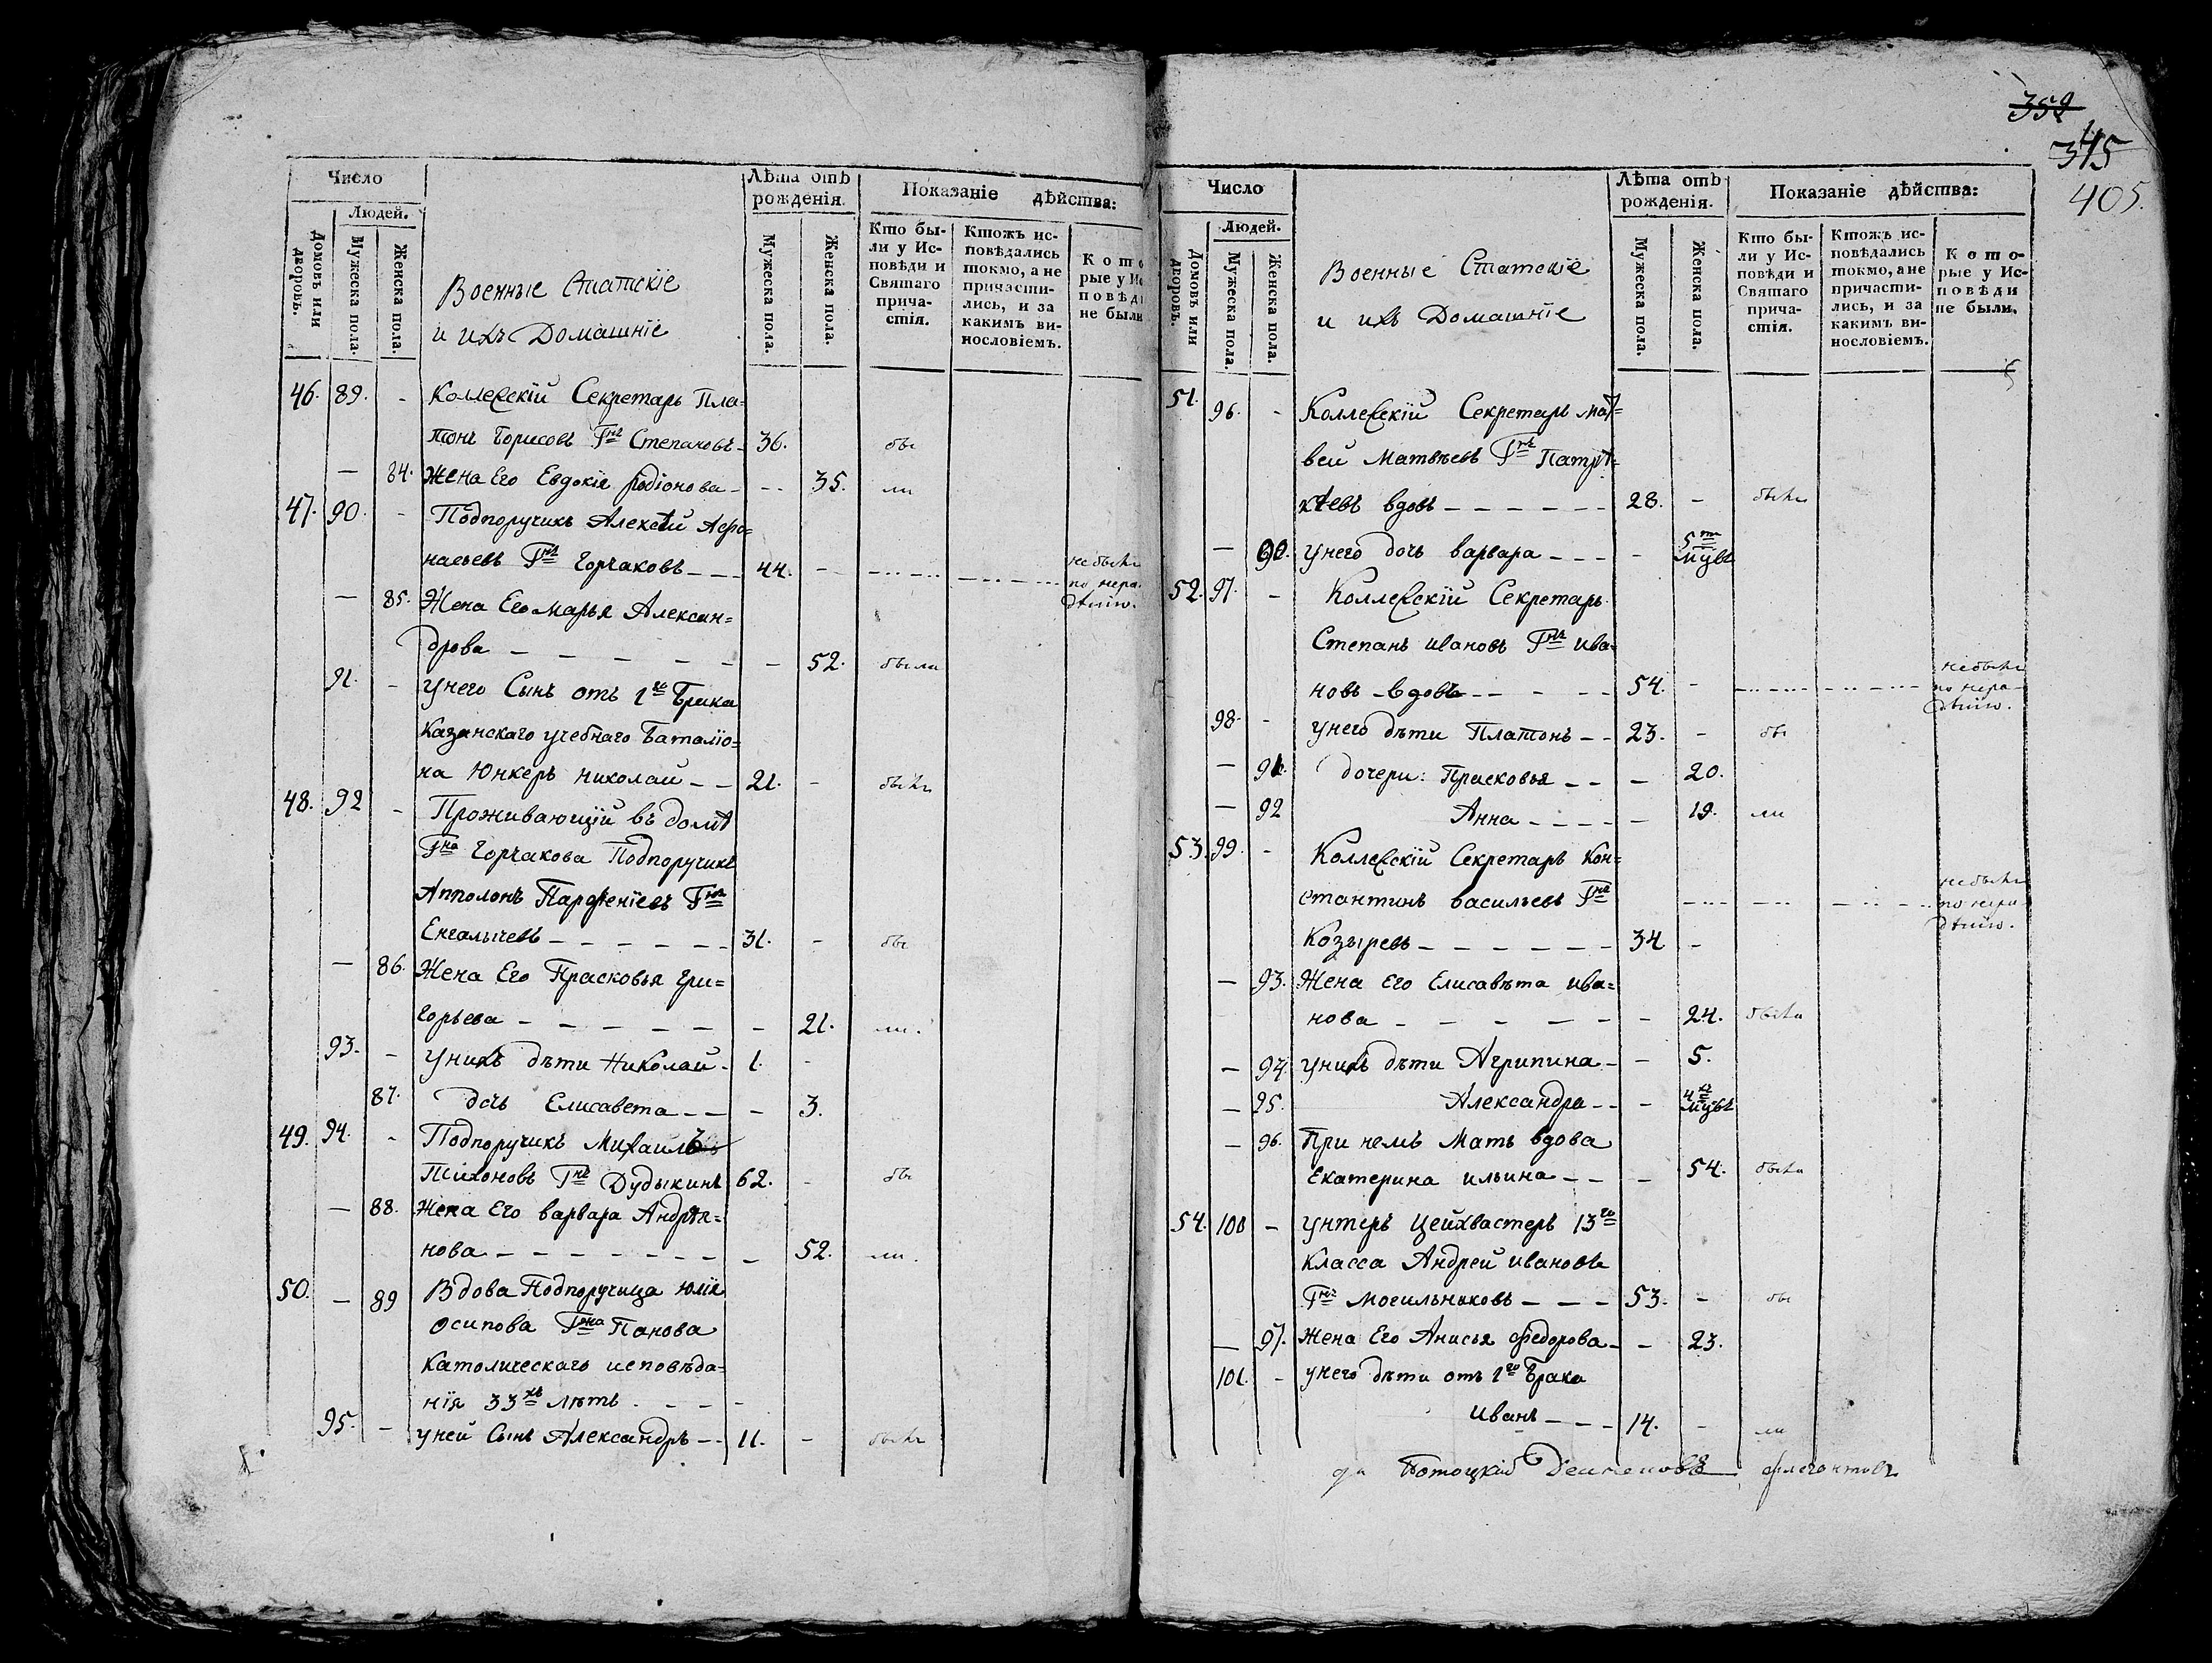 Число
Людей.
Домовъ или дворовъ.
Мужеска пола.
Женска пола.
Военные Статскіе
и ихъ Домашніе
Лѣта отъ рожденія.
Мужеска пола.
Женска пола.
Показаніе дѣйства:
Кто бы-
ли у Ис-
повѣди и
Святаго
прича-
стія.
Ктожъ ис-
повѣдались
токмо, а не
причасти-
лись, и за
какимъ ви-
нословіемъ.
Кото
рые у Ис
повѣди
не были
46. 89. - Коллежскій Секретарь Пла=
тонъ Борисовъ Гнъ Степановъ - 36. бы
— 84. Жена Его Евдокія Родіонова - -- 35. ли
47. 90. - Подпоручикъ Алексѣй Афо=
насьевъ Гнъ Горчаковъ --- 44. - не были
по нера-
дѣнію.
— 85. Жена Его Марья Алексан=
дрова ------ - 52. были
91. - У него Сынъ отъ 1го Брака
Казанскаго учебнаго Баталіо=
на Юнкеръ Николай -- 21. - были
48. 92 - Проживающій въ домѣ
Гна Горчакова Подпоручикъ
Апполонъ Парфеніевъ Гнъ
Енгалычевъ ------ 31. - бы
— 86. Жена Его Прасковья Гри=
горьева ------ - 21. ли.
93. - У нихъ дѣти Николай - 1. -
87. дочь Елисавета -- - 3.
49. 94. - Подпоручикъ Михаилъ
Тихоновъ Гнъ Дудыкинъ 62. - бы
— 88. Жена Его Варвара Андрея=
нова ------- - 52. ли.
50. — 89 Вдова Подпоручица Юлія
Осипова Гжа Панова
Католическаго исповѣда=
нія 33хъ лѣтъ. ---
95. - У ней Сынъ Александръ -- 11. - были
352
345
405.
Число
Людей.
Домовъ или дворовъ.
Мужеска пола.
Женска пола.
Военные Статскіе
и ихъ Домашніе
Лѣта отъ рожденія.
Мужеска пола.
Женска пола.
Показаніе дѣйства:
Кто бы-
ли у Ис-
повѣди и
Святаго
прича-
стія.
Ктожъ ис-
повѣдались
токмо, а не
причасти-
лись, и за
какимъ ви-
нословіемъ.
Кото-
рые у Ис-
повѣди
не были.
51. 96. - Коллежскій Секретарь Мат=
вей Матвѣевъ Гнъ Патрѣ=
кѣевъ вдовъ ------ 28. - были
— 90. У него дочь Варвара --- - 5ти мцвъ
52. 97. - Коллежскій Секретарь
Степанъ Ивановъ Гнъ Ива=
новъ - вдовъ ----- 54. - не были
по нера-
дѣнію.
98. - У него дѣти Платонъ -- 23. - бы
— 91. дочери: Прасковья -- - 20.
— 92 Анна ---- - 19. ли
53. 99. - Коллежскій Секретарь Кон=
стантинъ Васильевъ Гнъ
Козыревъ ------ 34 - не были
по нера-
дѣнію.
— 93. Жена Его Елисавѣта Ива=
нова ------ - 24. были
— 94. У нихъ дѣти Агрипина - - 5.
— 95. Александра -- - 4хъ мцвъ
— 96. При немъ Мать вдова
Екатерина Ильина -- - 54. были
54. 100 - Унтеръ Цейхвастеръ 13го
Класса Андрей Ивановъ
Гнъ Могильниковъ --- 53. - бы
— 97. Жена Его Анисья Федорова - - 23.
101. - У него дѣти отъ 1го Брака
Иванъ --- 14. - ли